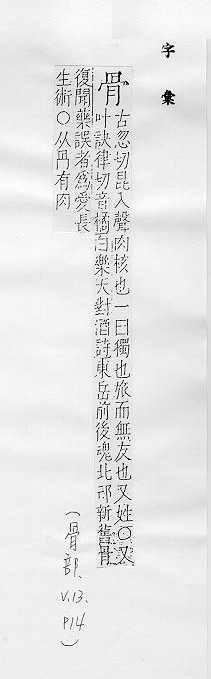 字彙
骨
古忽切昆入聲肉核也一曰獨也旅而無友也又姓○又
叶訣律切音橘白樂天對酒詩東岳前後魂北邙新舊骨
復聞藥誤者爲愛長
生術○从冎有肉
(骨部、V.13.P14)